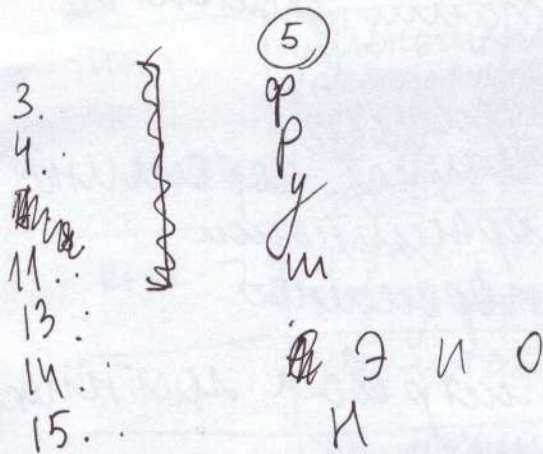 5
3.
4.
11.
13.
14.
15.
ф
р
у
т
Э И О
И